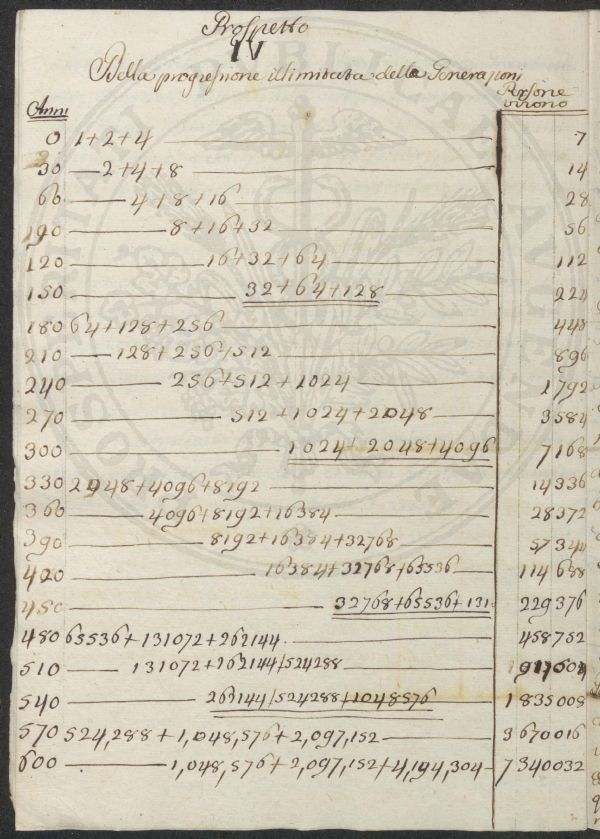 Prospetto
IV
Della progressione illimitata della Generazioni
Anni Persone vivono
0 1+2+4 7
30 2+4+8 14
60 4+8+16 28
190 8+16+32 56
120 16+32+64 112
150 32+64+128 224
180 64+128+256 448
210 128+256+512 896
240 256+512+1024 1792
270 512+1024+2048 3584
300 1024+2048+4096 7168
330 2048+4096+8192 14336
360 4096+8192+16384 28372
390 8192+16384+32768 57344
420 16384+32768+65536 114688
450 32768+65536+131 229376
480 65536+131072+262144 458752
510 131072+262144/524288
540 262144/524288+1048576 1835008
570 524,288+1,048,576+2,097,152 3670016
600 1,048,576+2,097,152+4,194,304 7340032